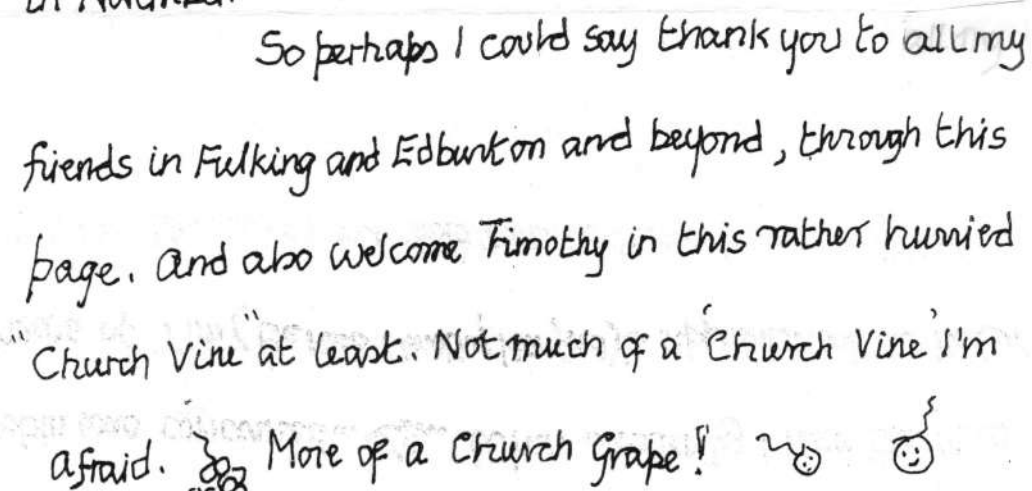 So perhaps I could say thank you to all my
friends in Fulking and Edburton and beyond, through this
page. And also welcome Timothy in this rather hurried
"Church Vine" at least. Not much of a 'Church Vine' I'm
afraid. More of a Church Grape!